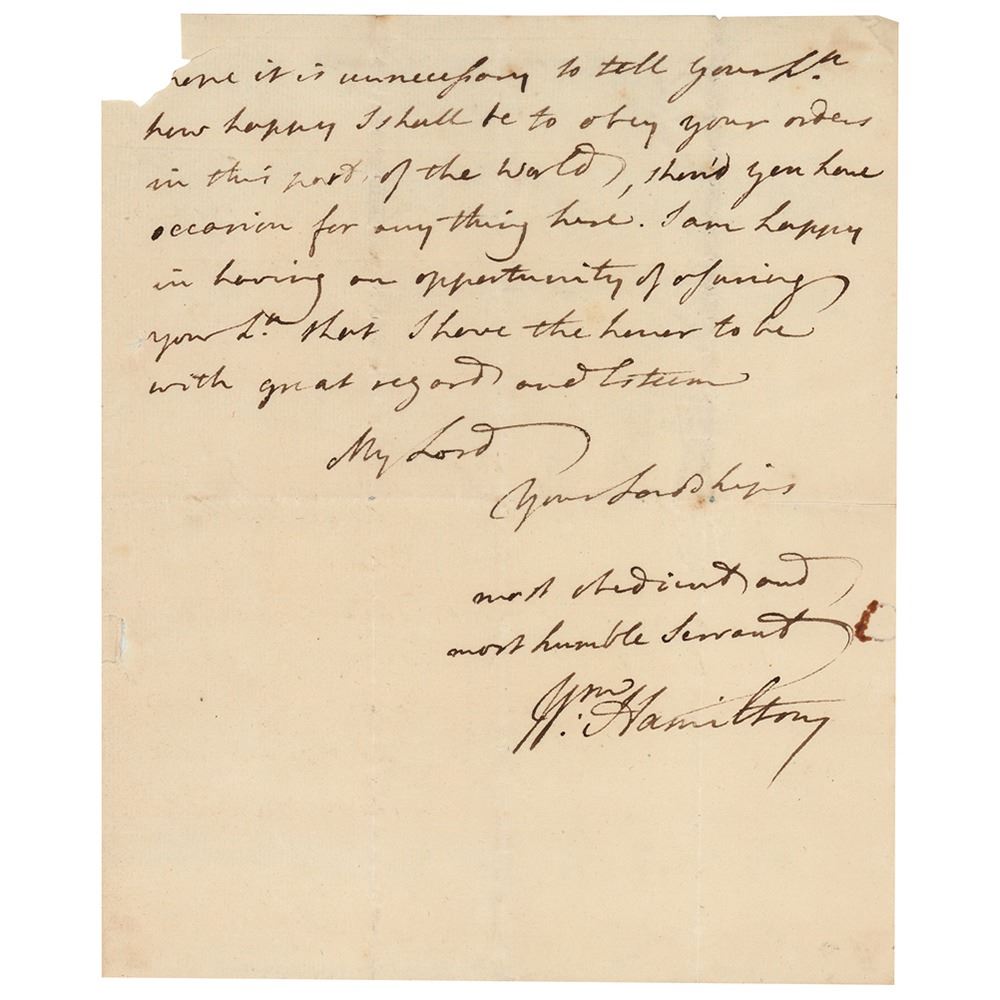 hope it is unnecessary to tell your Lp
how happy I shall be to obey your orders
in this part of the World, shou'd you have
occasion for any thing here. I am happy
in having an opportunity of assuring
your Lp that I have the honor to be
with great regard and Esteem
My Lord
Your Lordships
most obedient and
most humble Servant
Wm. Hamilton